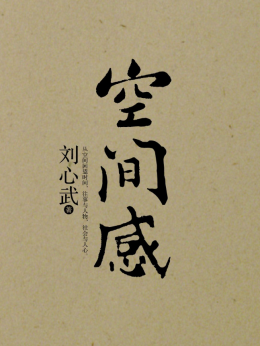 空间感
从空间到时间，往事与人物，社会与人心
刘心武 著